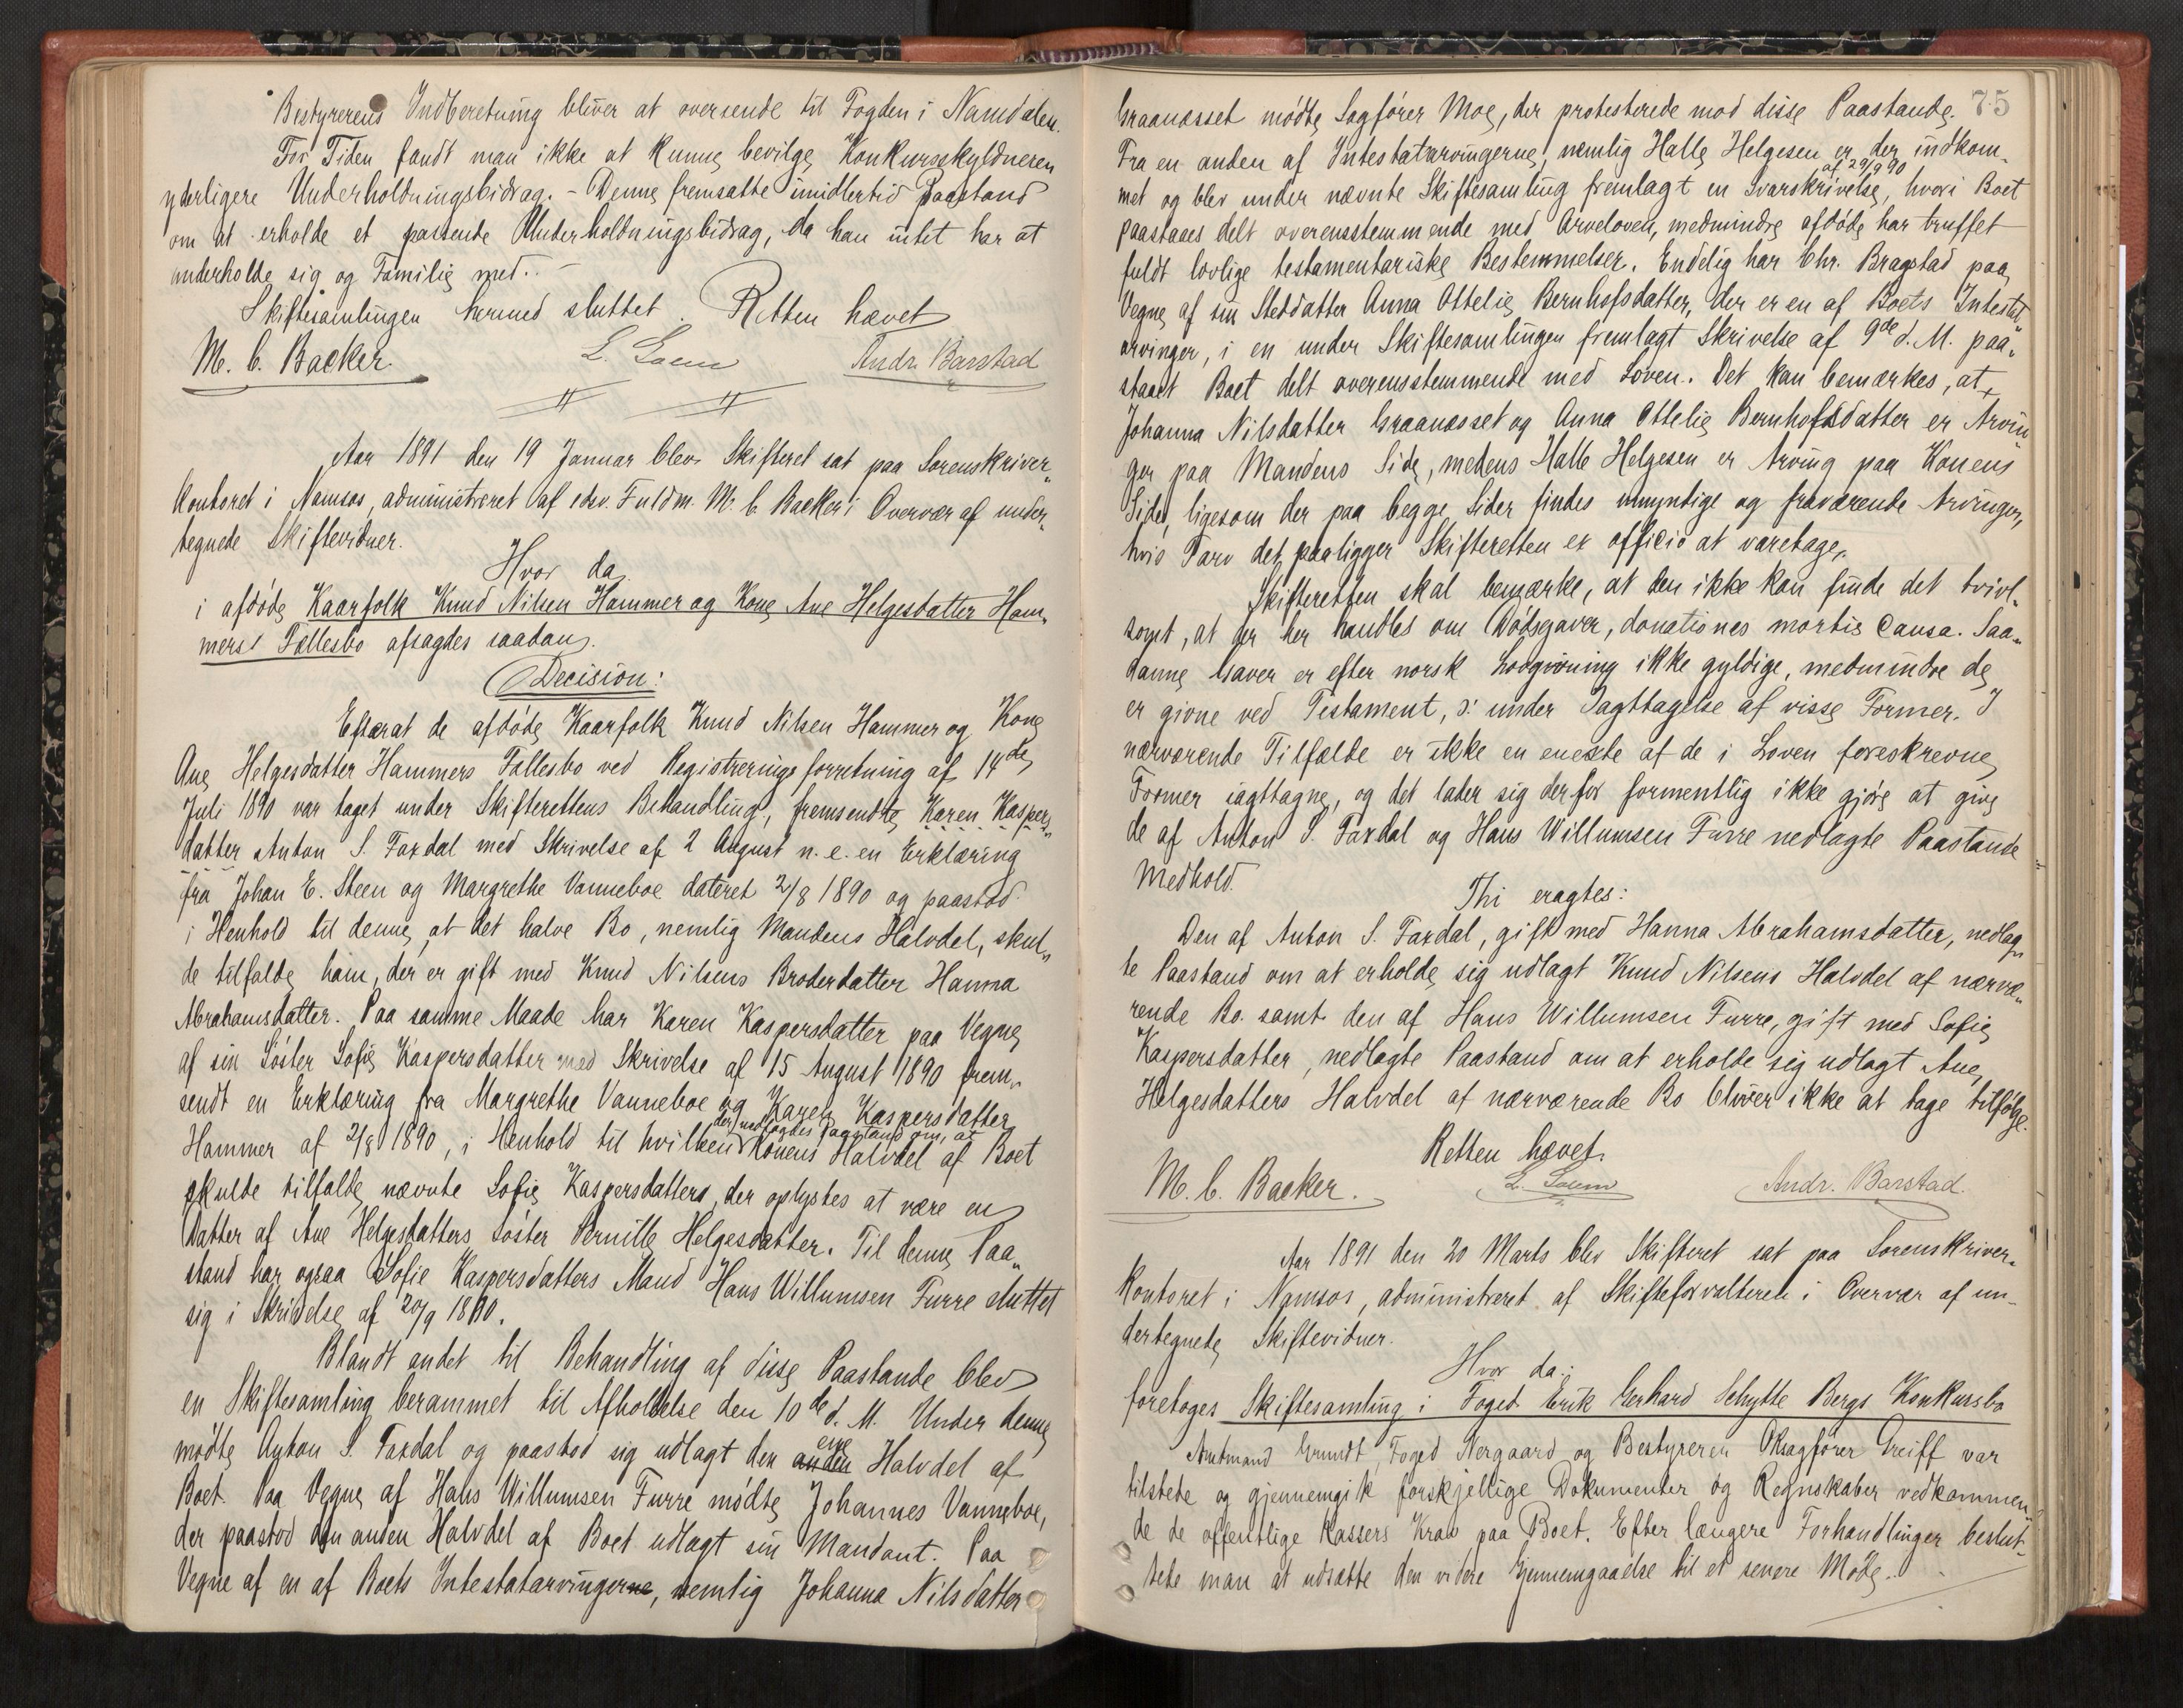 Bestyrerens Indberetning bliver at oversende til Fogden i Namdalen.
For Tiden fandt man ikke at kunne bevilge Konkursskyldneren
yderligere Underholdningsbidrag. - Denne fremsatte imidlertid Paastand
om at erholde et passende Underholdningsbidrag, da han intet har at
underholde sig og Familie med. -
Skiftesamlingen hermed sluttet. Retten hævet
M. C. Backer. L. Andr. Barstad
Aar 1891 den 19 Januar blev Skifteret sat paa Sorenskriver„
kontoret i Namsos, administreret af edsv. Fuldm. M. C. Backer i Overvær af under„
tegnede Skiftevidner.
Hvor da
i afdøde Kaarfolk Knud Nilsen Hammer og Kone Ane Helgesdatter Ham„
mers Fællesbo afsagdes saadan
Decision:
Efterat de afdøde Kaarfolk Knud Nilsen Hammer og Kone
Ane Helgesdatter Hammers Fællesbo ved Registreringsforretning af 14de
Juli 1890 var taget under Skifterettens Behandling, fremsendte Karen Kaspers„
datter Anton S. Faxdal med Skrivelse af 2 August n. e. en Erklæring
fra Johan E. Steen og Margrethe Vanneboe dateret 2/8 1890 og paastod
i Henhold til denne, at det halve Bo, nemlig Mandens Halvdel, skul„
de tilfalde ham, der er gift med Knud Nilsens Broderdatter Hanna
Abrahamsdatter. Paa samme Maade har Karen Kaspersdatter paa Vegne
af sin Søster Sofie Kaspersdatter med Skrivelse af 15 August 1890 frem„
sendt en Erklæring fra Margrethe Vanneboe og Karen Kaspersdatter
der nedlagdes Paastand om, at
Hammer af 2/8 1890, i Henhold til hvilken Konens Halvdel af Boet
skulde tilfalde nævnte Sofie Kaspersdatters, der oplystes at være en
Datter af Ane Helgesdatters Søster Pernille Helgesdatter. Til denne Paa„
stand har ogsaa Sofie Kaspersdatters Mand Hans Willumsen Furre sluttet
sig i Skrivelse af 20/9 1890.
Blandt andet til Behandling af disse Paastande blev
en Skiftesamling berammet til Afholdelse den 10de d. M. Under denne
mødte Anton S. Faxdal og paastod sig udlagt den anden ene Halvdel af
Boet. Paa Vegne af Hans Willumsen Furre mødte Johannes Vanneboe,
der paastod den anden Halvdel af Boet udlagt sin Mandant. Paa
Vegne af en af Boets Intestatarvingerne, nemlig Johanna Nilsdatter
75
Graanæsset mødte Sagfører Moe, der protesterede mod disse Paastande.
Fra en anden af Intestatarvingerne, nemlig Halle Helgesen er der indkom„
af 29/9 90
met og blev under nævnte Skiftesamling fremlagt en Svarskrivelse, hvori Boet
paastaaes delt overensstemmende med Arveloven, medmindre afdøde har truffet
fuldt lovlige testamentariske Bestemmelser. Endelig har Chr. Bragstad paa
Vegne af sin Steddatter Anna Ottelie Bernhofsdatter, der er en af Boets Intestat„
arvinger, i en under Skiftesamlingen fremlagt Skrivelse af 9de d. M. paa„
staaet Boet delt overensstemmende med Loven. Det kan bemærkes, at
Johanna Nilsdatter Graanæsset og Anna Ottelie Bernhofsdatter er Arvin„
ger paa Mandens Side, medens Halle Helgesen er Arving paa Konens
Side, ligesom der paa begge Sider findes umyndige og fraværende Arvinger,
hvis Tarv det paaligger Skifteretten ex officio at varetage.
Skifteretten skal bemærke, at den ikke kan finde det tvivl„
somt, at der her handles om Dødsgaver, donationes mortis causa. Saa„
danne Gaver er efter norsk Lovgivning ikke gyldige, medmindre de
er givne ved Testament, ɔ: under Iagttagelse af visse Former. I
nærværende Tilfælde er ikke en eneste af de i Loven foreskrevne
Former iagttagne, og det lader sig derfor formentlig ikke gjøre at give
de af Anton S. Faxdal og Hans Willumsen Furre nedlagte Paastande
Medhold.
Thi eragtes:
Den af Anton S. Faxdal, gift med Hanna Abrahamsdatter, nedlag„
te Paastand om at erholde sig udlagt Knud Nilsens Halvdel af nærvæ„
rende Bo. samt den af Hans Willumsen Furre, gift med Sofie
Kaspersdatter, nedlagte Paastand om at erholde sig udlagt Ane
Helgesdatters Halvdel af nærværende Bo bliver ikke at tage tilfølge.
Retten hævet.
M. C. Backer. L. Andr. Barstad.
Aar 1891 den 20 Marts blev Skifteret sat paa Sorenskriver„
kontoret i Namsos, administreret af Skifteforvalteren i Overvær af un-
dertegnede Skiftevidner.
Hvor da:
foretoges Skiftesamling i Foged Erik Gerhard Schytte Bergs Konkursbo
Amtmand Grundt, Foged Nergaard og Bestyreren Greiff var
tilstede og gjennemgik forskjellige Dokumenter og Regnskaber vedkommen„
de de offentlige Kassers Krav paa Boet. Efter længere Forhandlinger beslut„
tede man at udsætte den videre Gjennemgaaelse til et senere Møde.